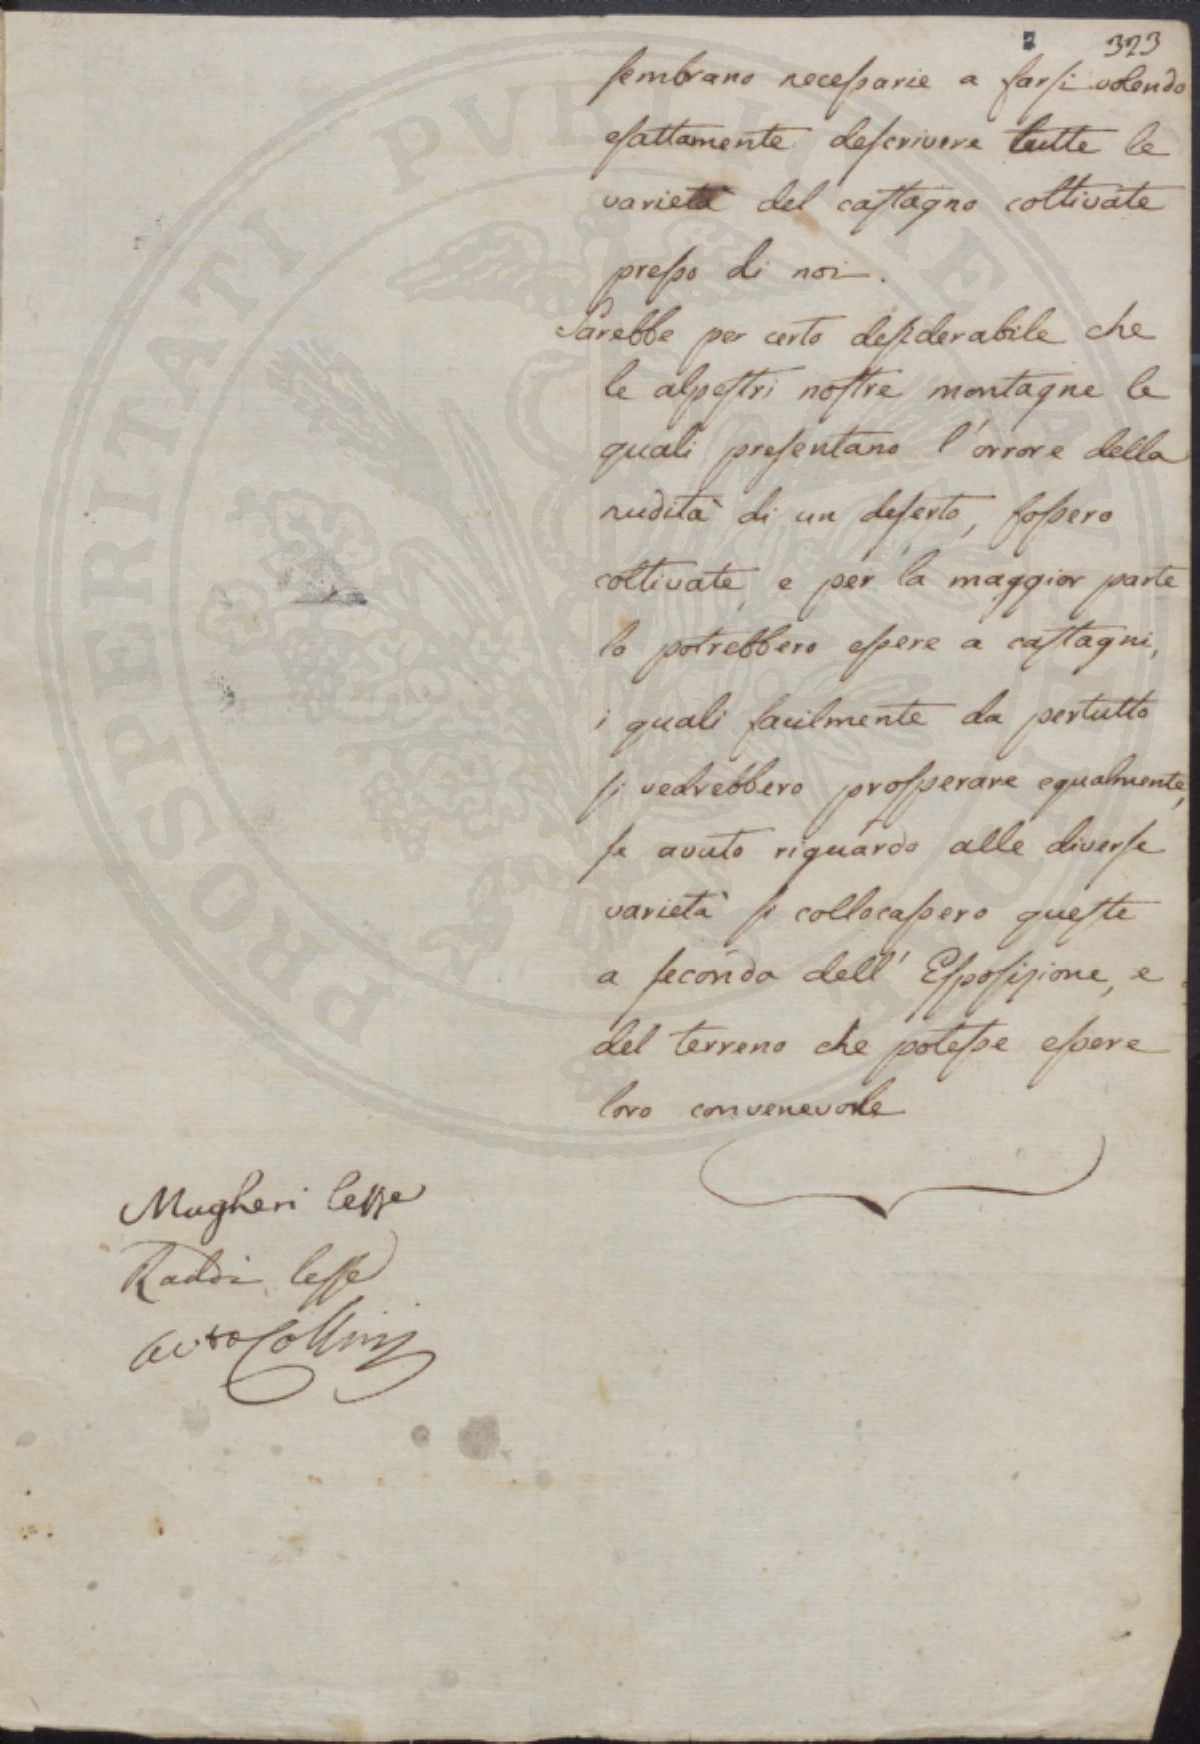 323
sembrano necessarie a farsi volendo
esattamente descrivere tutte le
varietà del castagno coltivate
presso di noi.
Sarebbe per certo desiderabile che
le alpestri nostre montagne le
quali presentano l'orrore della
nudità di un deserto, fossero
coltivate, e per la maggior parte
lo potrebbero essere a castagni,
i quali facilmente da pertutto
si vedrebbero prosperare egualmente,
se avuto riguardo alle diverse
varietà si collocassero queste
a seconda dell'Esposizione, e
del terreno che potesse essere
loro convenevole
Mugheri lesse
Raddi lesse
Collini
PROSPERITATI PVBLICAE